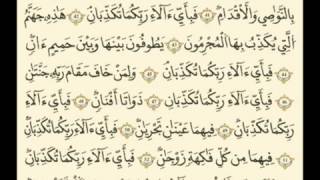 بِالنَّوَٰصِي وَالْأَقْدَامِ ۝ فَبِأَيِّ ءَالَآءِ رَبِّكُمَا تُكَذِّبَانِ ۝ هَٰذِهِ جَهَنَّمُ
الَّتِي يُكَذِّبُ بِهَا الْمُجْرِمُونَ ۝ يَطُوفُونَ بَيْنَهَا وَبَيْنَ حَمِيمٍ ءَانٍ
۝ فَبِأَيِّ ءَالَآءِ رَبِّكُمَا تُكَذِّبَانِ ۝ وَلِمَنْ خَافَ مَقَامَ رَبِّهِ جَنَّتَانِ
۝ فَبِأَيِّ ءَالَآءِ رَبِّكُمَا تُكَذِّبَانِ ۝ ذَوَاتَا أَفْنَانٍ ۝ فَبِأَيِّ ءَالَآءِ
رَبِّكُمَا تُكَذِّبَانِ ۝ فِيهِمَا عَيْنَانِ تَجْرِيَانِ ۝ فَبِأَيِّ ءَالَآءِ رَبِّكُمَا تُكَذِّبَانِ
۝ فِيهِمَا مِن كُلِّ فَٰكِهَةٍ زَوْجَانِ ۝ فَبِأَيِّ ءَالَآءِ رَبِّكُمَا تُكَذِّبَانِ